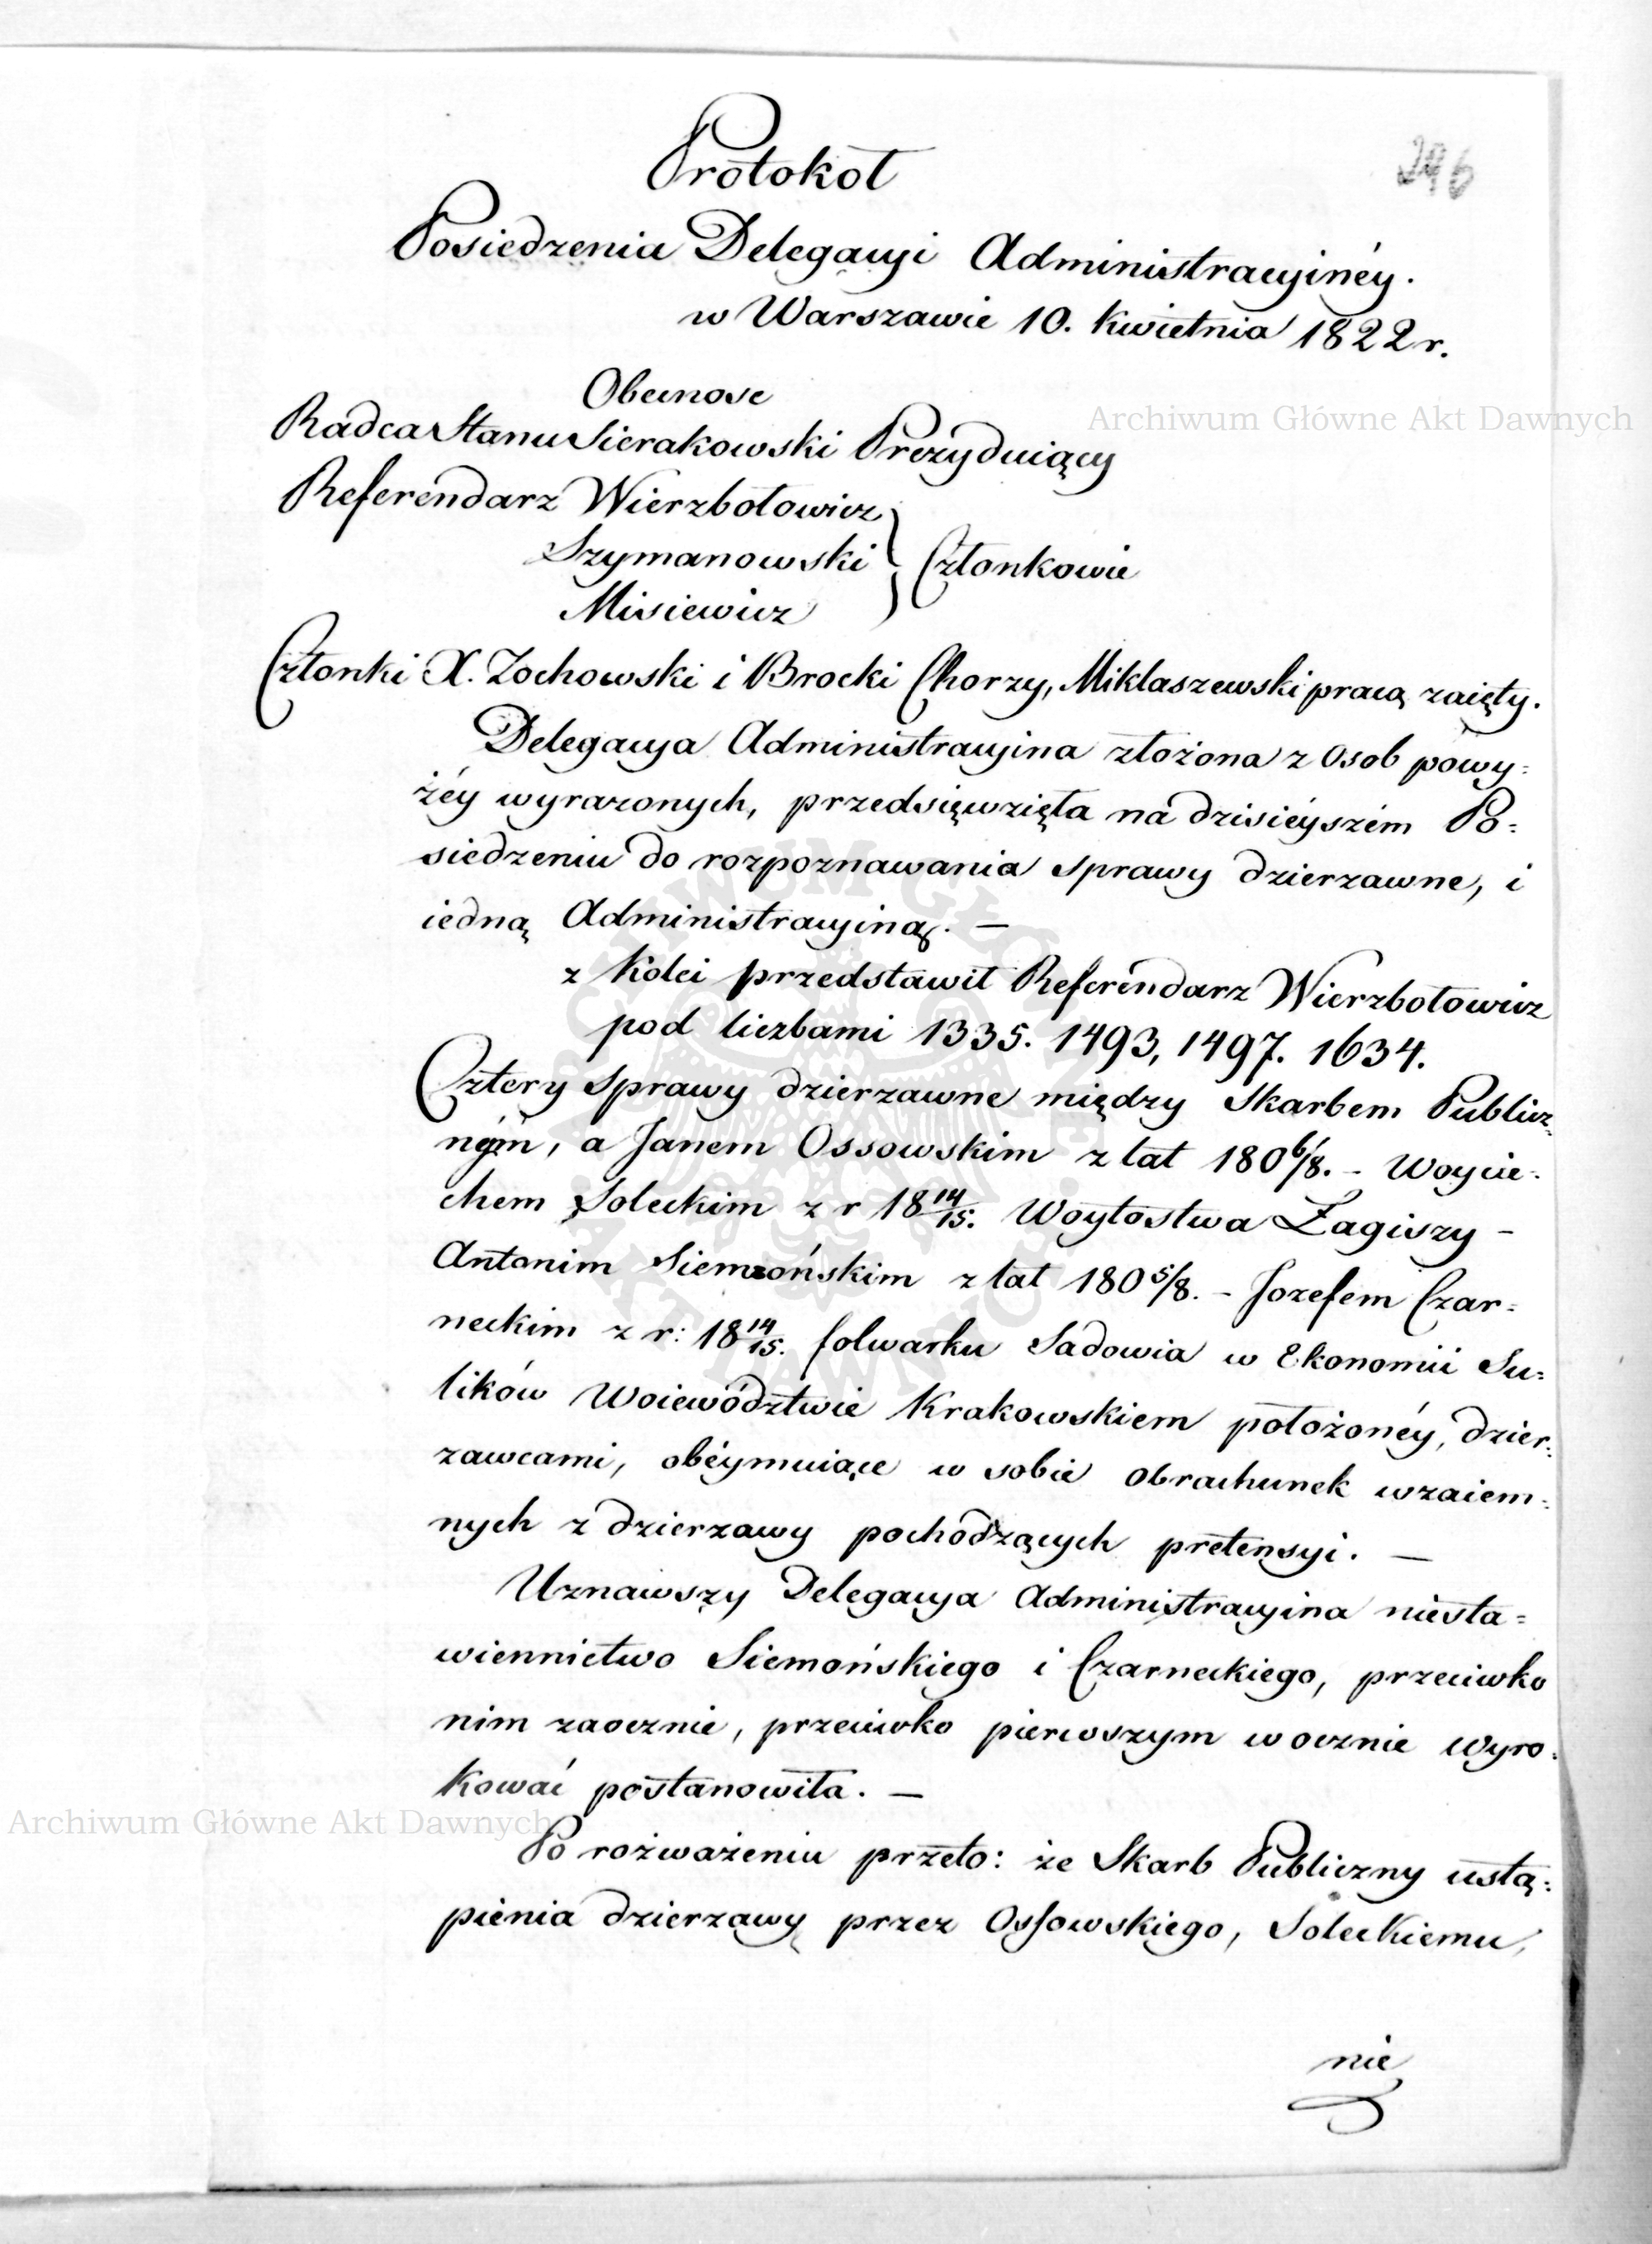 Protokół
296
Posiedzenia Delegacyi Administracyinéy.
w Warszawie 10. Kwietnia 1822 r.
Obecnosc
Archiwum Główne Akt Dawnych
Radca Stanu Sierakowski Prezyduiący
Referendarz Wierzbołowicz
Szymanowski } Członkowie
Misiewicz
Członki X. Zochowski i Brocki Chorzy, Miklaszewski pracą zaięty.
Delegacya Administracyina złożona z Osob powy=
żéy wyrazonych, przedsięwzięła na dzisiéyszém Po=
siedzeniu do rozpoznawania sprawy dzierzawne, i
iedną Administracyiną. —
z Kolei przedstawił Referendarz Wierzbołowicz
pod liczbami 1335. 1493, 1497. 1634.
Cztery sprawy dzierzawne między Skarbem Publicz=
ném, a Janem Ossowskim z lat 1806/8. – Woycie=
chem Soleckim z r 18 14/15. Woytostwa Łagiszy –
Antonim Siemońskim z lat 1805/8. – Jozefem Czar=
neckim z r: 18 14/15. folwarku Sadowia w Ekonomii Su=
lików Woiewództwie Krakowskiem położonéy, dzier=
zawcami, obéymuiące w sobie obrachunek wzaiem=
nych z dzierzawy pochodzących pretensyi. —
Uznawszy Delegacya Administracyina niesta=
wiennictwo Siemońskiego i Czarneckiego, przeciwko
nim zaocznie, przeciwko pierwszym w ocznie wyro=
kować postanowiła. —
Archiwum Główne Akt Dawnych
Po rozważeniu przeto: że Skarb Publiczny ustą=
pienia dzierzawy przez Ossowskiego, Soleckiemu,
nie